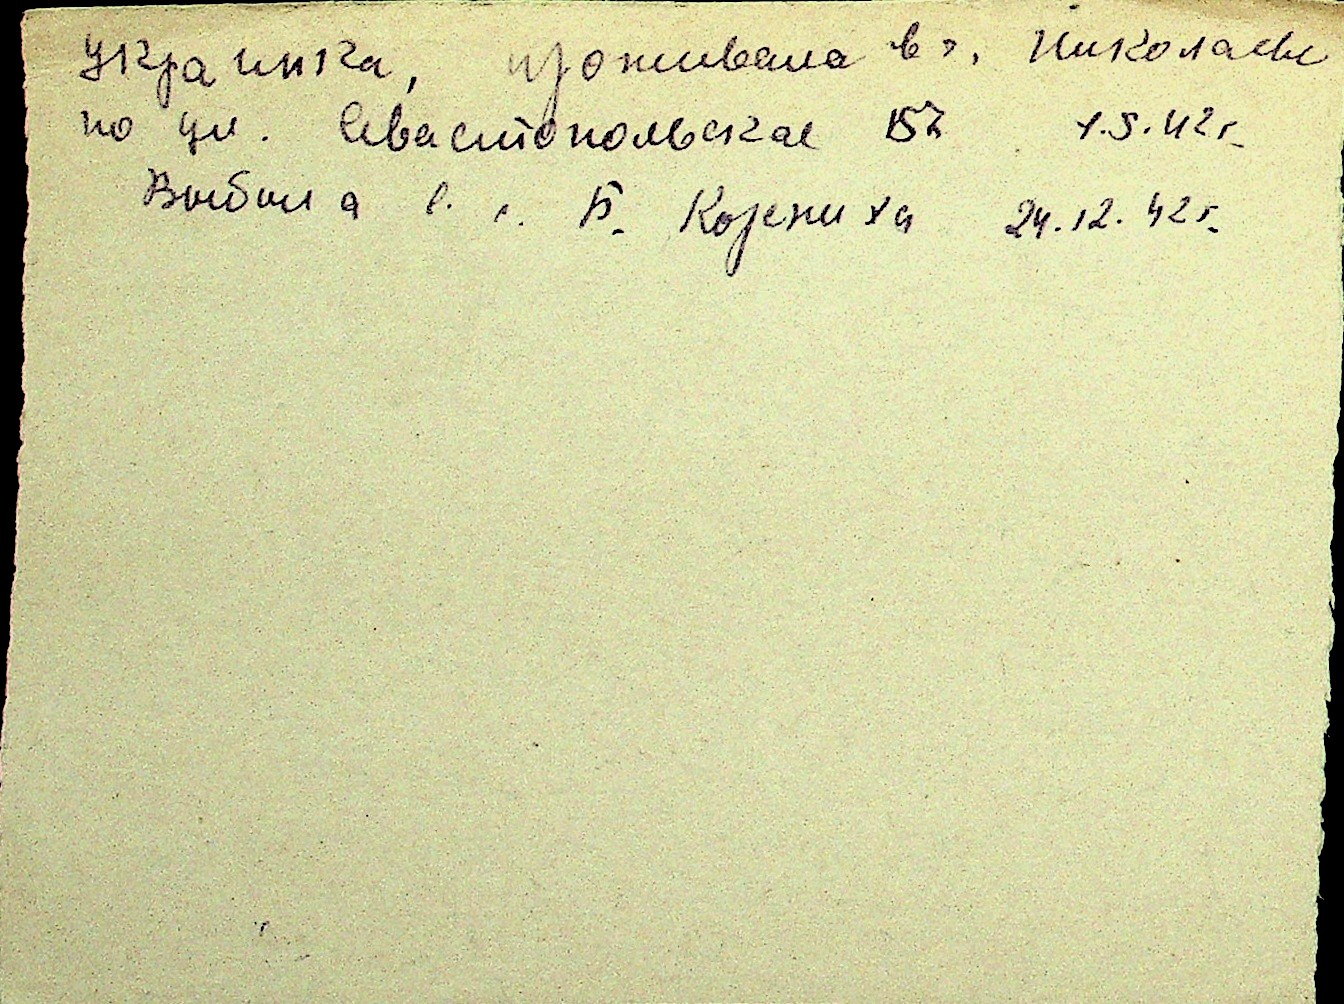 Украинка, проживала в г. Николаеве
по ул. Севастопольская 157 1.5.42 г.
Выбыла в с. Б. Корениха 24.12.42 г.